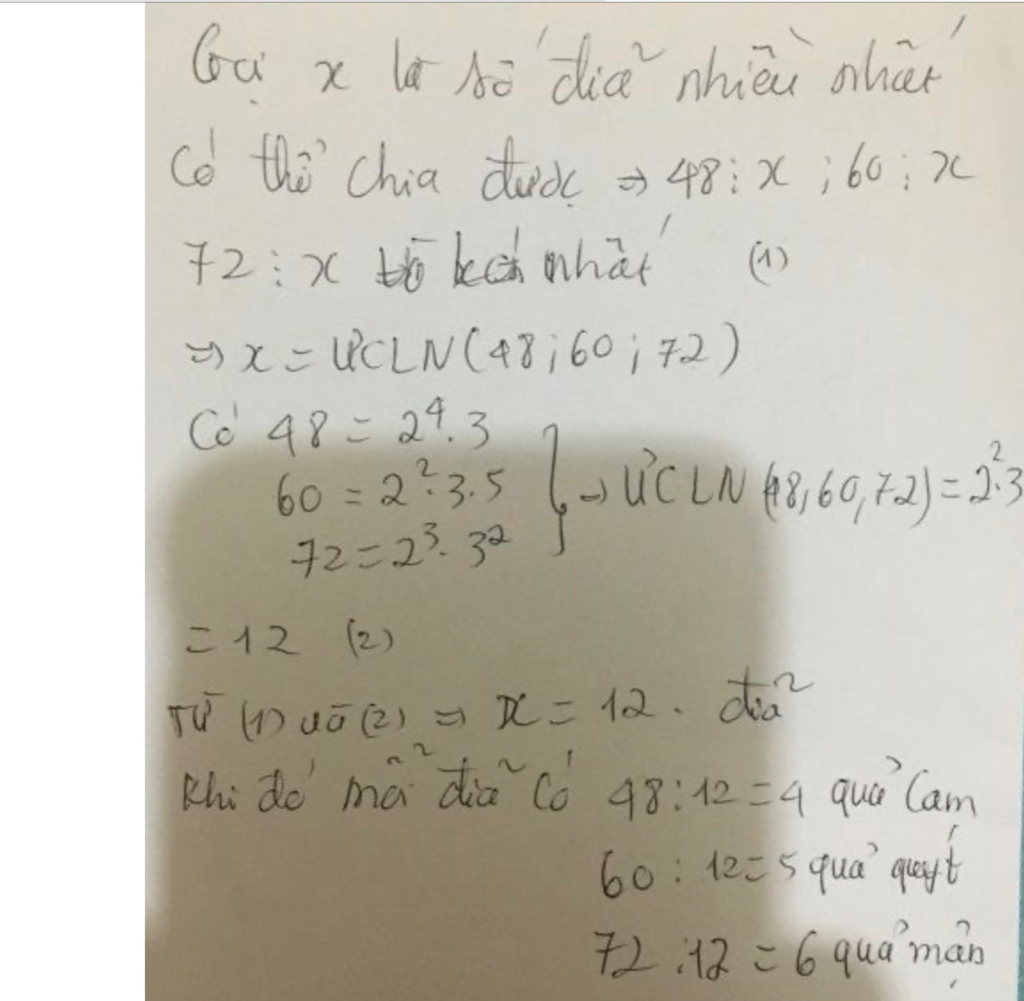 Gọi x là số đĩa nhiều nhất
Có thể chia được ⇒ 48 ⋮ x ; 60 ⋮ x
72 ⋮ x nhất (1)
⇒ x = ƯCLN(48; 60; 72)
Có 48 = 2⁴.3
60 = 2².3.5 } ⇒ ƯCLN (48,60,72) = 2².3
72 = 2³.3²
= 12 (2)
Từ (1) và (2) ⇒ x = 12. đĩa
Khi đó mỗi đĩa Có 48:12=4 quả Cam
60 : 12=5 quả quyt
72 :12 = 6 quả mận